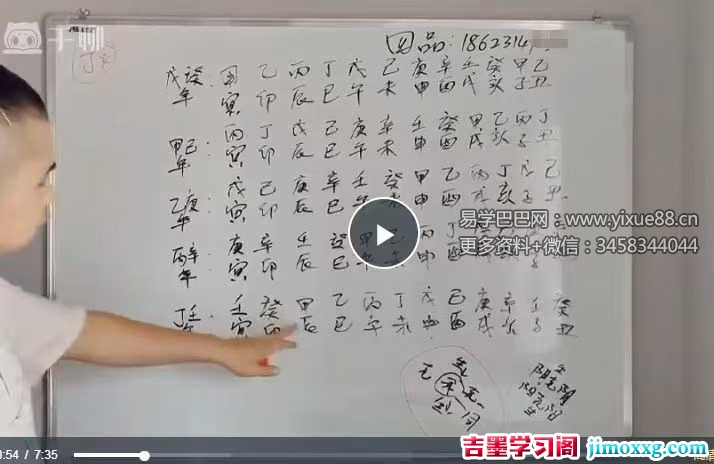 千聊
因品:18623314
戊癸年: 甲寅 乙卯 丙辰 丁巳 戊午 己未 庚申 辛酉 壬戌 癸亥 甲子 乙丑
甲己年: 丙寅 丁卯 戊辰 己巳 庚午 辛未 壬申 癸酉 甲戌 乙亥 丙子 丁丑
乙庚年: 戊寅 己卯 庚辰 辛巳 壬午 癸未 甲申 乙酉 丙戌 丁亥 戊子 己丑
易学巴巴网:www.yixue88.cn
更多资料+微信:3458344044
丙辛年: 庚寅 辛卯 壬辰 癸巳 甲午
丁壬年: 壬寅 癸卯 甲辰 乙巳 丙午 丁未 戊申 己酉 庚戌 辛亥 壬子 癸丑
:54 / 7:35
吉墨学习阁 jimoxxg.com